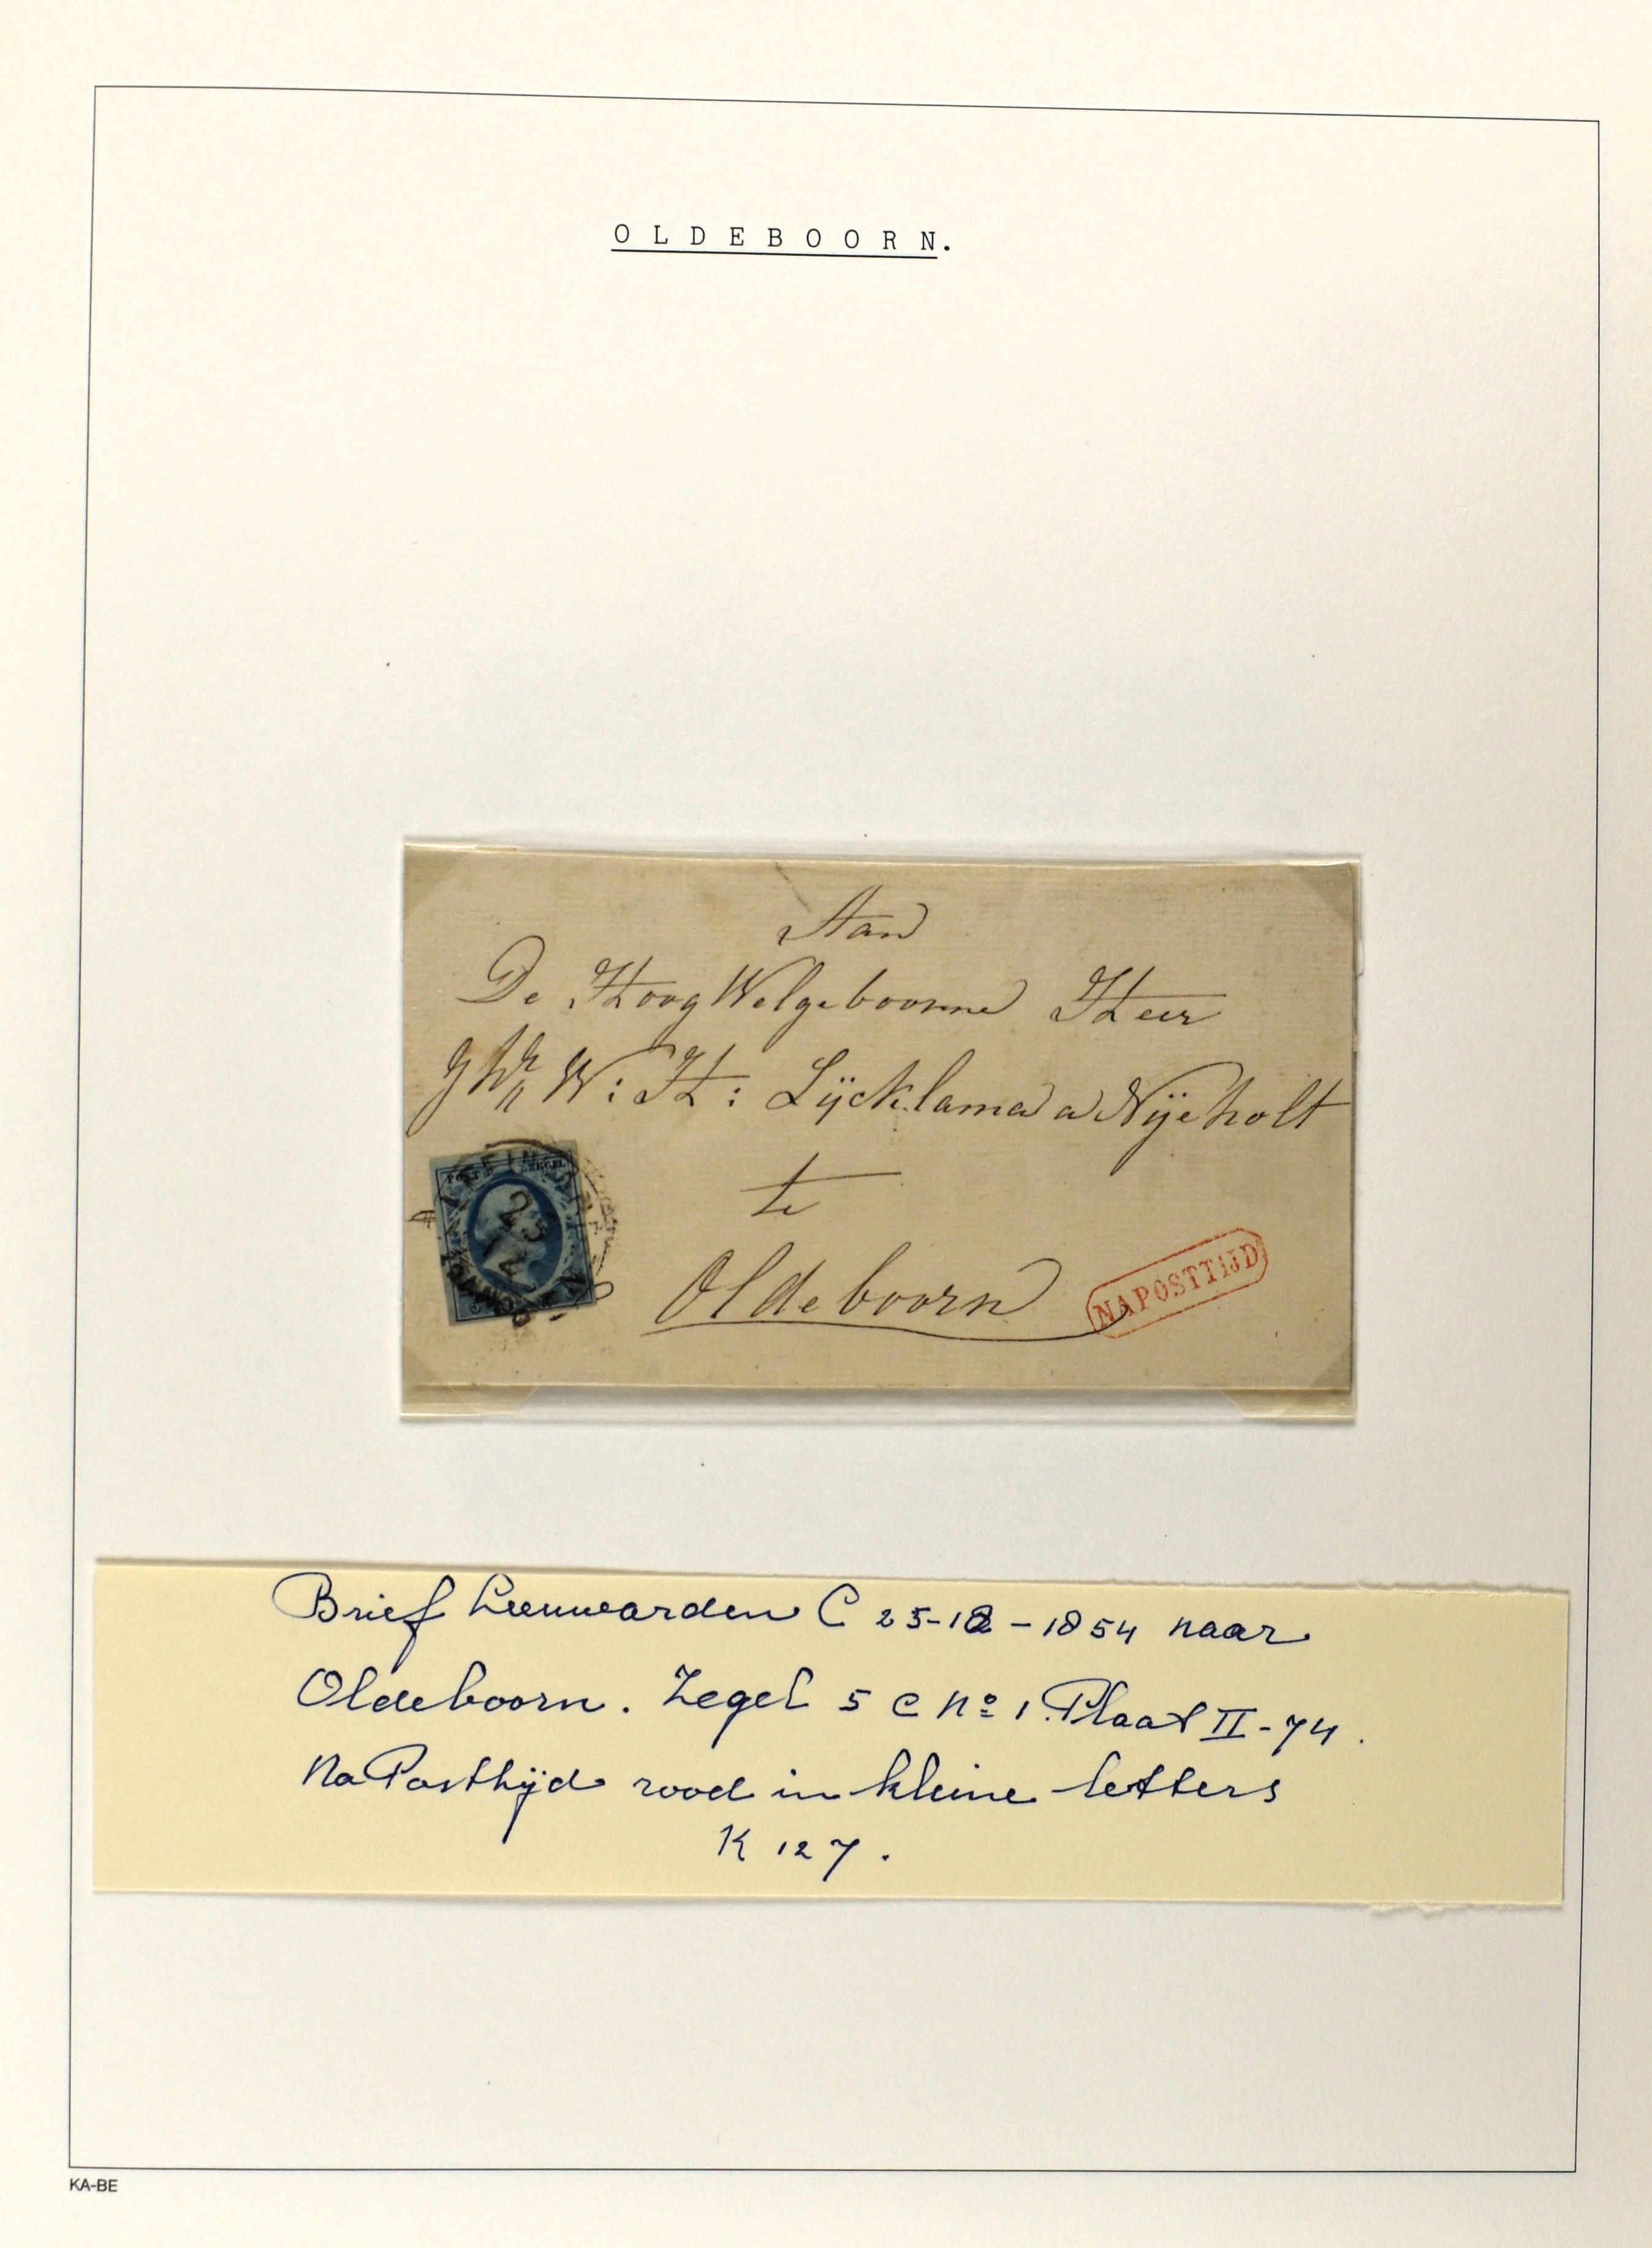 O L D E B O O R N.
Aan
De HoogWelgeboorne Heer
JHr W: H: Lÿcklama a Nÿeholt
te
Oldeboorn
NAPOSTTIJD
POST ZEGEL
25
12
Brief Leeuwarden C 25-12-1854 naar
Oldeboorn. Zegel 5 c No 1. Plaat II-74.
Na Posttijd rood in kleine letters
K 127.
KA-BE